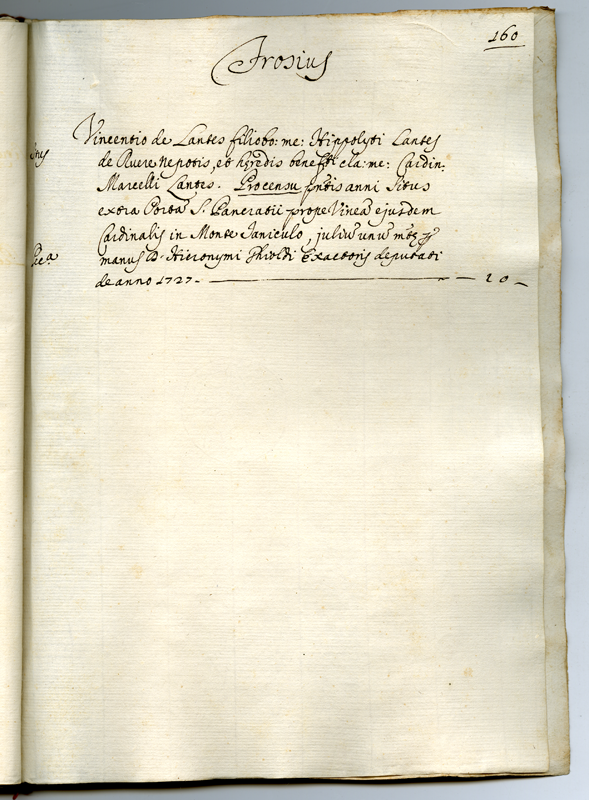 160
Vincentio de Lantes filio bo: me: Hippolyti Lantes
de Ruere Nepotis, et hæredis cla: me: Cardin:
Marcelli Lantes. Pro censu pntis anni Situs
extra Porta S. Pancratii prope Vinea ejusdem
Cardinalis in Monte Janiculo, juliũ unũ
manus D. Hieronymi Exactoris deputati
de anno 1727. — 10 —